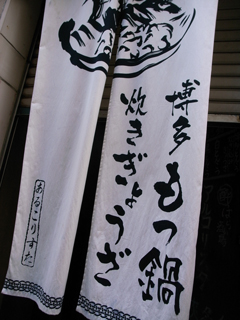 博多もつ鍋
炊きぎょうざ
あるこりすた